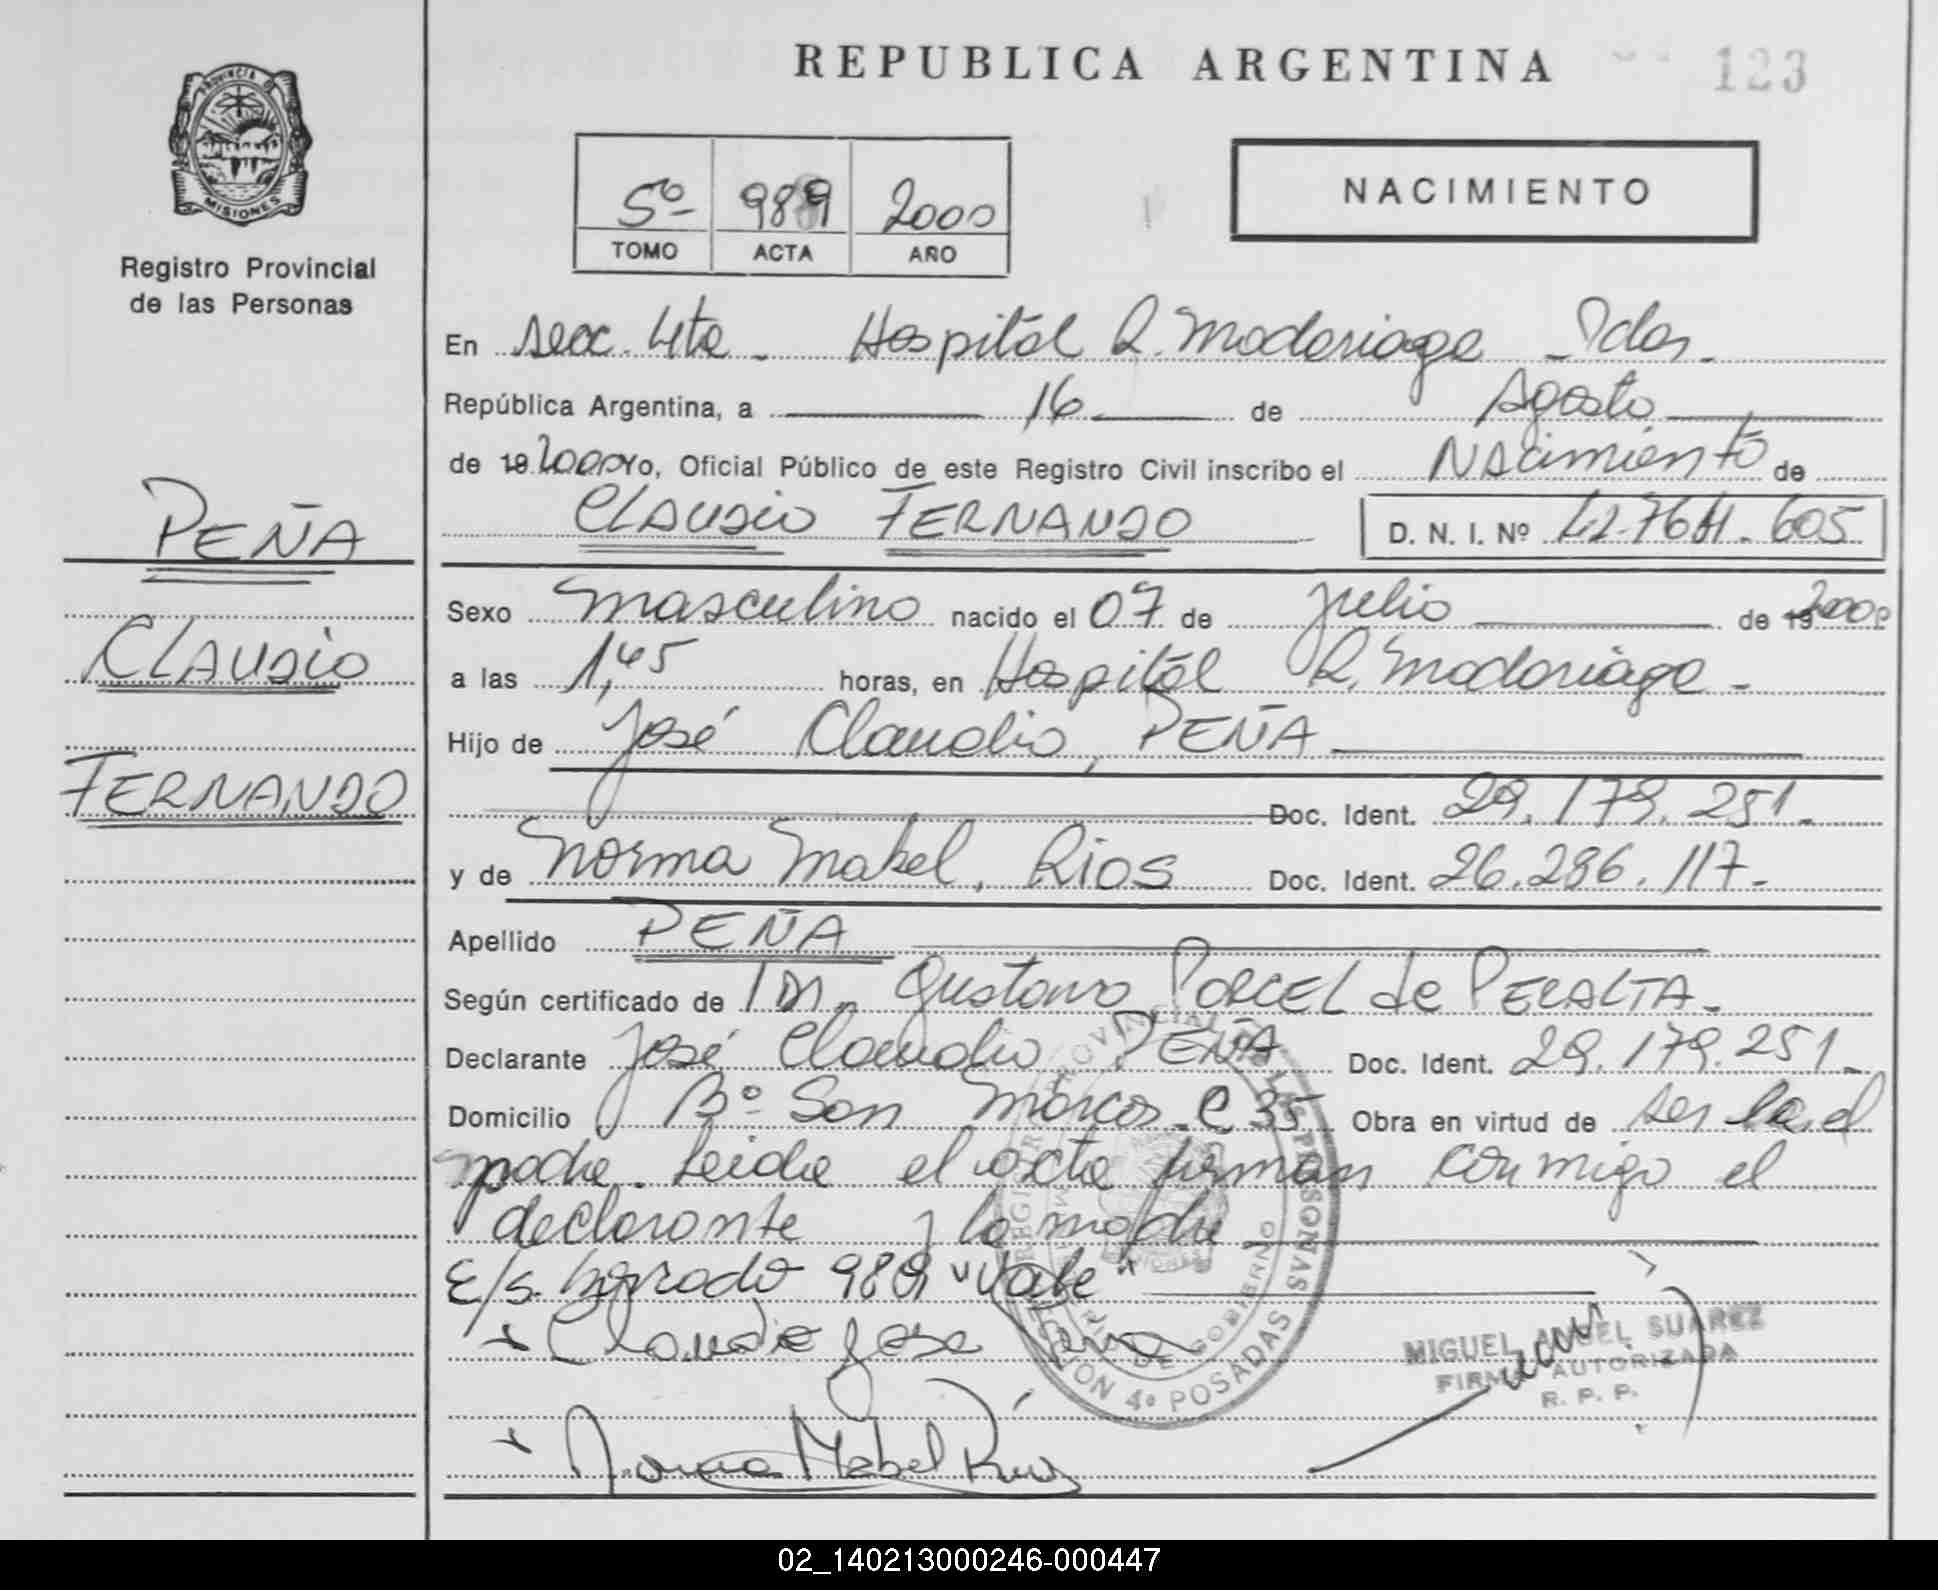 REPUBLICA ARGENTINA
123
PROVINCIA DE
MISIONES
Registro Provincial
de las Personas
5º 989 2000
TOMO ACTA AÑO
NACIMIENTO
PEÑA
CLAUDIO
FERNANDO
En secc. 4ta. Hospital R. Madariaga - Pdas.
República Argentina, a 16 de Agosto
de 19 2000 yo, Oficial Público de este Registro Civil inscribo el Nacimiento de
CLAUDIO FERNANDO D. N. I. Nº 605
Sexo masculino nacido el 07 de julio de 19 2000
a las 1,45 horas, en Hospital R. Madariaga -
Hijo de José Claudio, PEÑA
Doc. Ident. 29.179.251.
y de Norma Mabel, Rios Doc. Ident. 26.286.117-
Apellido PEÑA
Según certificado de Dr. Gustavo PORCEL de PERALTA.
Declarante José Claudio PEÑA Doc. Ident. 29.179.251.
Domicilio Bº San Marcos C 35 Obra en virtud de ser el
padre. Leida el acta firman conmigo el
declarante y la madre
E/s. borrado 989 "Vale"
Claudio Jose Peña
Norma Mabel Rios
REGISTRO PROVINCIAL DE LAS PERSONAS
MINISTERIO DE GOBIERNO
SECCION 4º POSADAS
MIGUEL ANGEL SUAREZ
FIRMA AUTORIZADA
R. P. P.
02_140213000246-000447